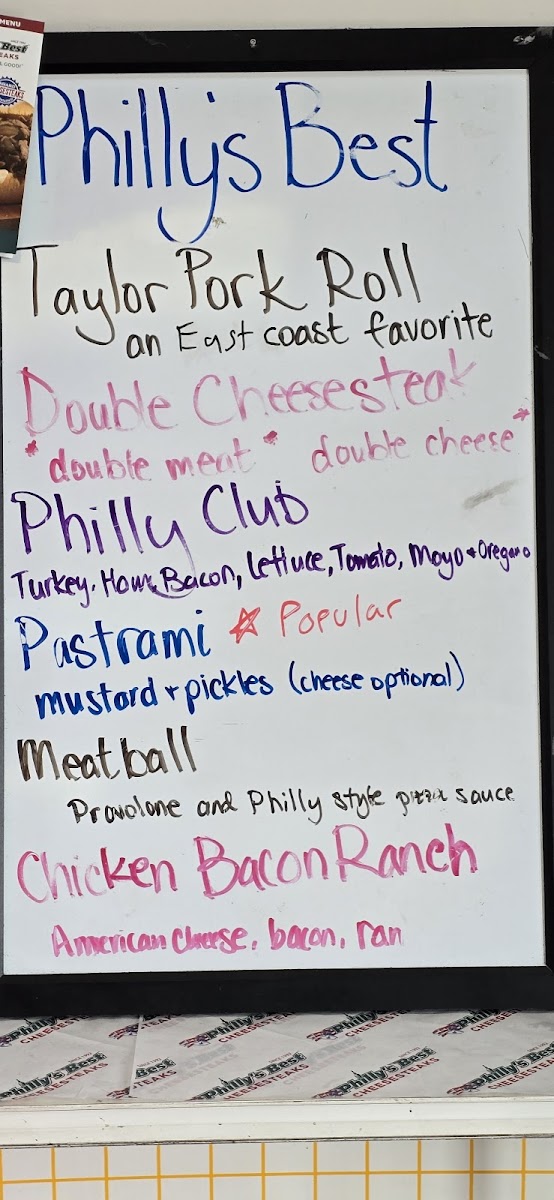 MENU
Best
EAKS
Philly's Best
Taylor Pork Roll
an East coast favorite
Double Cheesesteak
*double meat* double cheese*
Philly Club
Turkey, Ham, Bacon, Lettuce, Tomato, Mayo + Oregano
Pastrami ☆ Popular
mustard + pickles (cheese optional)
Meatball
Provolone and Philly style pizza sauce
Chicken Bacon Ranch
American cheese, bacon, ran
Philly's Best
CHEESESTEAKS